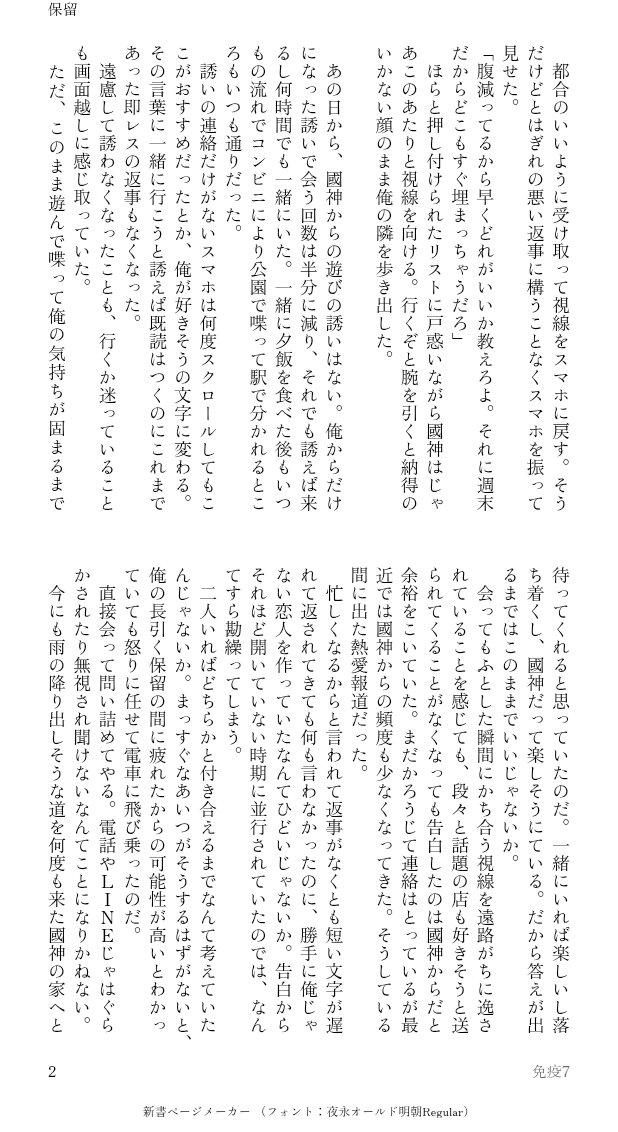 保留
都合のいいように受け取って視線をスマホに戻す。そう
だけどとはぎれの悪い返事に構うことなくスマホを振って
見せた。
「腹減ってるから早くどれがいいか教えろよ。それに週末
だからどこもすぐ埋まっちゃうだろ」
ほらと押し付けられたリストに戸惑いながら國神はじゃ
あこのあたりと視線を向ける。行くぞと腕を引くと納得の
いかない顔のまま俺の隣を歩き出した。
あの日から、國神からの遊びの誘いはない。俺からだけ
になった誘いで会う回数は半分に減り、それでも誘えば来
るし何時間でも一緒にいた。一緒に夕飯を食べた後もいつ
もの流れでコンビニにより公園で喋って駅で分かれるとこ
ろもいつも通りだった。
誘いの連絡だけがないスマホは何度スクロールしてもこ
こがおすすめだったとか、俺が好きそうの文字に変わる。
その言葉に一緒に行こうと誘えば既読はつくのにこれまで
あった即レスの返事もなくなった。
遠慮して誘わなくなったことも、行くか迷っていること
も画面越しに感じ取っていた。
ただ、このまま遊んで喋って俺の気持ちが固まるまで
待ってくれると思っていたのだ。一緒にいれば楽しいし落
ち着くし、國神だって楽しそうにている。だから答えが出
るまではこのままでいいじゃないか。
会ってもふとした瞬間にかち合う視線を遠路がちに逸さ
れていることを感じても、段々と話題の店も好きそうと送
られてくることがなくなっても告白したのは國神からだと
余裕をこいていた。まだかろうじて連絡はとっているが最
近では國神からの頻度も少なくなってきた。そうしている
間に出た熱愛報道だった。
忙しくなるからと言われて返事がなくとも短い文字が遅
れて返されてきても何も言わなかったのに、勝手に俺じゃ
ない恋人を作っていたなんてひどいじゃないか。告白から
それほど開いていない時期に並行されていたのでは、なん
てすら勘繰ってしまう。
二人いればどちらかと付き合えるまでなんて考えていた
んじゃないか。まっすぐなあいつがそうするはずがないと、
俺の長引く保留の間に疲れたからの可能性が高いとわかっ
ていても怒りに任せて電車に飛び乗ったのだ。
直接会って問い詰めてやる。電話やＬＩＮＥじゃはぐら
かされたり無視され聞けないなんてことになりかねない。
今にも雨の降り出しそうな道を何度も来た國神の家へと
2
免疫7
新書ページメーカー （フォント：夜永オールド明朝Regular）